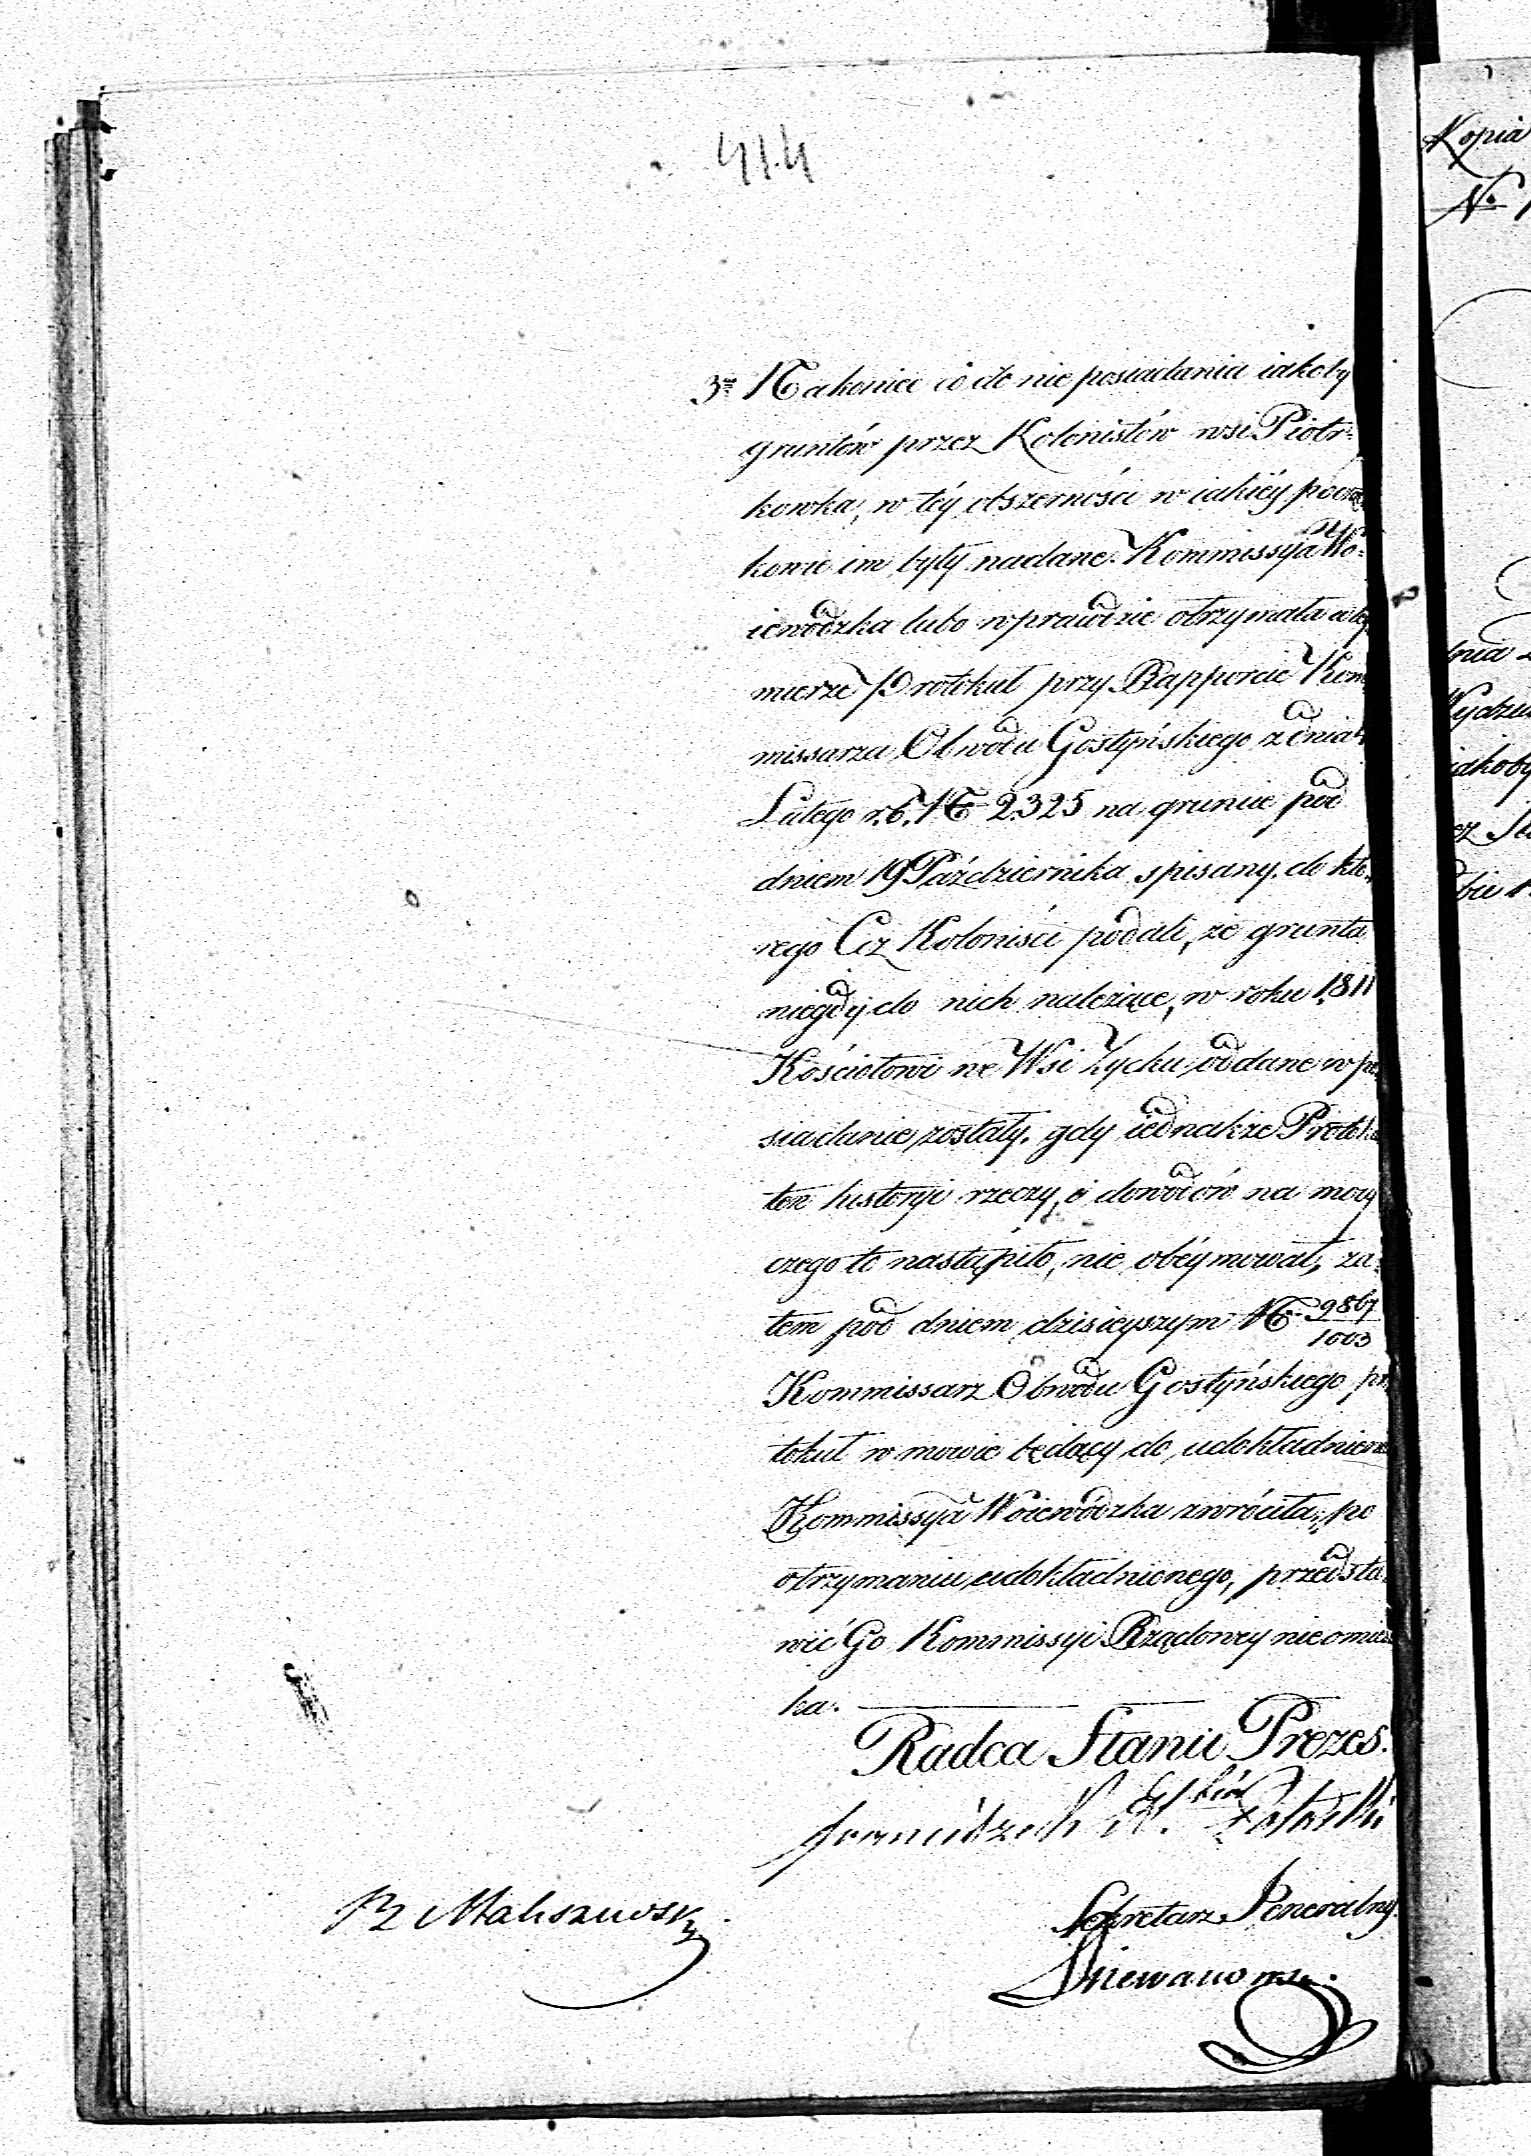 414
3º Nakoniec co do nie posiadania iakoby
gruntów przez Kolonistów wsi Piotr-
kowka, w téy obszerności w iakiéy począt
kowie im były nadane. Kommissyia Wo-
iewódzka lubo wprawdzie otrzymała w téy
mierze Protokuł przy Rapporcie Kom
missarza Obwodu Gostyńskiego z dnia
Lutego r. b. N 2325 na gruncie pod
dniem 19 Października spisany, do któ-
rego Ciż Koloniści podali, że grunta
niegdyi do nich należące, w roku 1811
Kościołowi we Wsi Zycku oddane w po
siadanie zostały. gdy iednakże Protoku
ten historyi rzeczy, i dowodów na mocy
czego to nastąpiło, nie obeymował, za-
tem pod dniem dzisieyszym N 9867/1003
Kommissarz Obwodu Gostyńskiego pro
tokuł w mowie będący do udokładnienia
Kommissyia Woiewódzka zwróciła, po
otrzymaniu udokładnionego, przedsta-
wić Go Kommissyi Rządowey nieomiesz
ka.
Radca Stanu Prezes.
Franciszek Potocki
Sekretarz Jeneralny
Maliszewski
Kopia
N.
dnia
Wydzia
iakoby